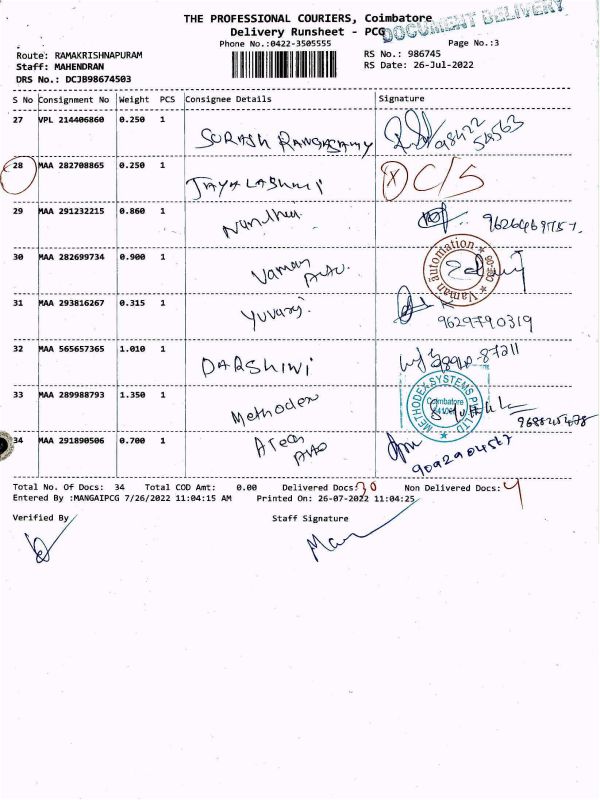 THE PROFESSIONAL COURIERS, Coimbatore
DOCUMENT DELIVERY
Delivery Runsheet - PCG
Phone No.:0422-3505555
Page No.:3
Route: RAMAKRISHNAPURAM
RS No.: 986745
Staff: MAHENDRAN
RS Date: 26-Jul-2022
DRS No.: DCJB98674503
S No Consignment No Weight PCS Consignee Details Signature
27 VPL 214406860 0.250 1 SURASH RANGASAMY
28 MAA 282708865 0.250 1 JAYALASHMI X C/S
29 MAA 291232215 0.860 1 Nandhu 9626469757.
30 MAA 282699734 0.900 1 Vaman Auto. Vaman automation
31 MAA 293816267 0.315 1 Yuvaraj 9629790319
32 MAA 565657365 1.010 1 DARSHINI 87211
33 MAA 289988793 1.350 1 Methodex METHODEX SYSTEMS PVT LTD Coimbatore
34 MAA 291890506 0.700 1 ATech Auto 9092904567
Total No. Of Docs: 34 Total COD Amt: 0.00 Delivered Docs: 30 Non Delivered Docs: 4
Entered By :MANGAIPCG 7/26/2022 11:04:15 AM Printed On: 26-07-2022 11:04:25
Verified By Staff Signature